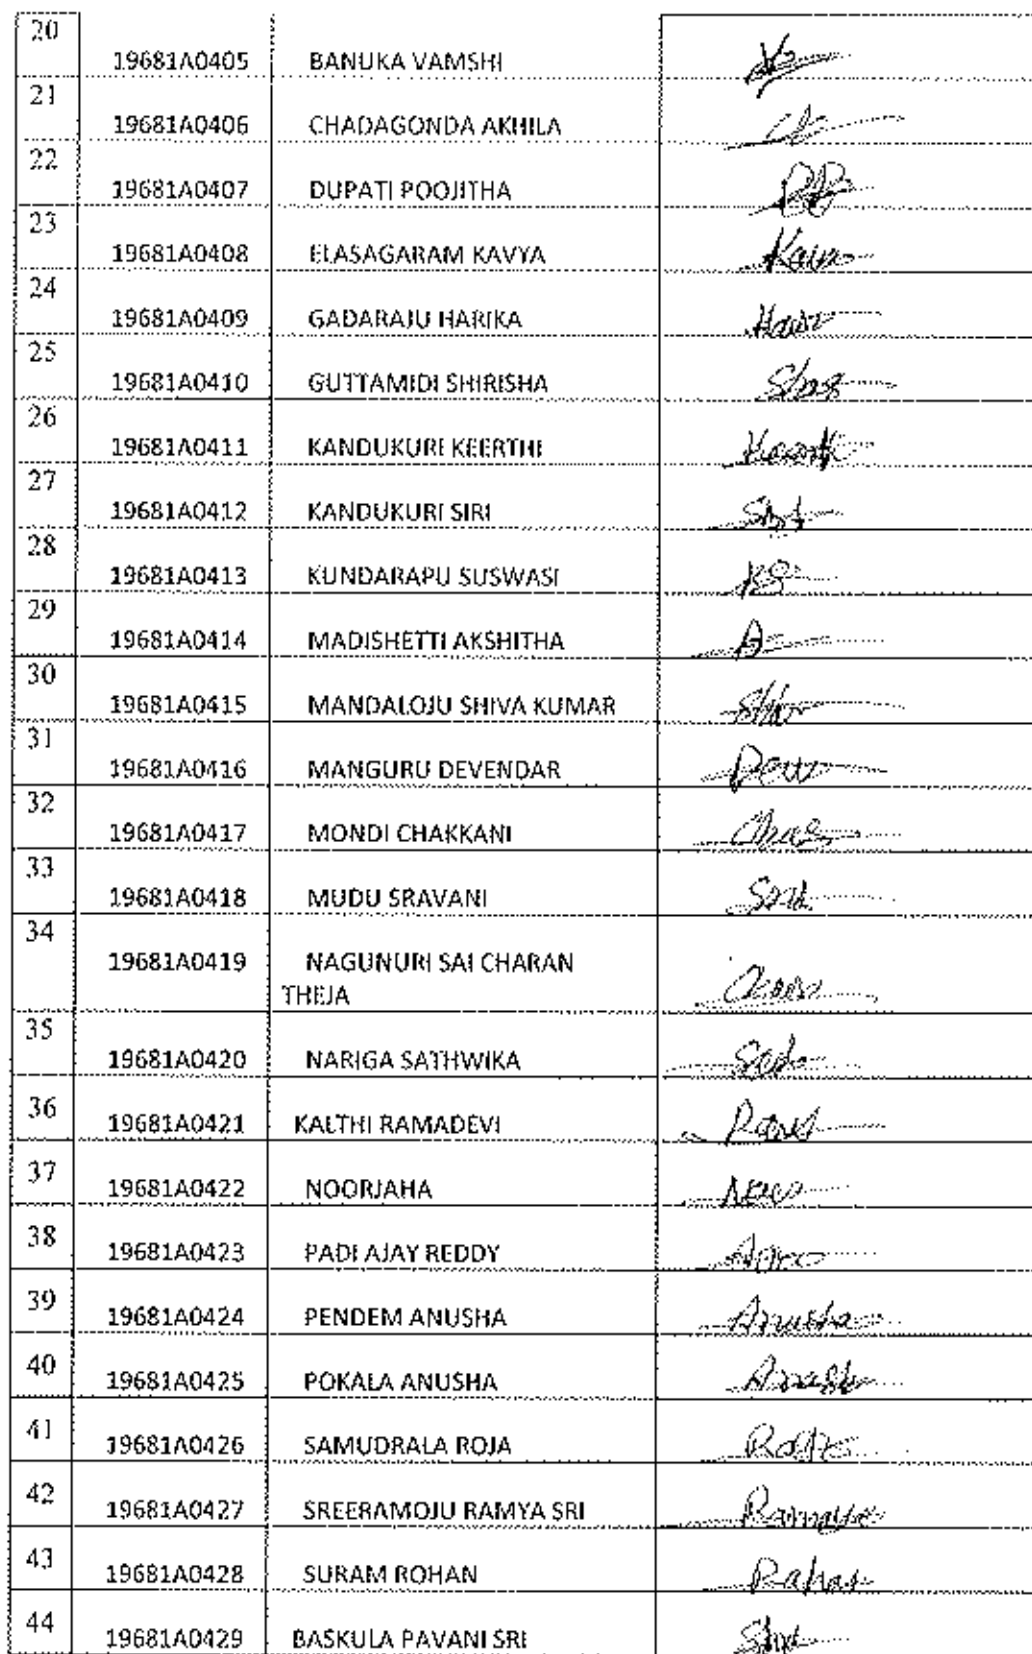 20 19681A0405 BANUKA VAMSHI
21 19681A0406 CHADAGONDA AKHILA
22 19681A0407 DUPATI POOJITHA
23 19681A0408 ELASAGARAM KAVYA
24 19681A0409 GADARAJU HARIKA
25 19681A0410 GUTTAMIDI SHIRISHA
26 19681A0411 KANDUKURI KEERTHI
27 19681A0412 KANDUKURI SIRI
28 19681A0413 KUNDARAPU SUSWASI KS
29 19681A0414 MADISHETTI AKSHITHA A
30 19681A0415 MANDALOJU SHIVA KUMAR
31 19681A0416 MANGURU DEVENDAR
32 19681A0417 MONDI CHAKKANI
33 19681A0418 MUDU SRAVANI
34 19681A0419 NAGUNURI SAI CHARAN
THEJA
35 19681A0420 NARIGA SATHWIKA
36 19681A0421 KALTHI RAMADEVI
37 19681A0422 NOORJAHA
38 19681A0423 PADI AJAY REDDY
39 19681A0424 PENDEM ANUSHA Anusha
40 19681A0425 POKALA ANUSHA
41 19681A0426 SAMUDRALA ROJA
42 19681A0427 SREERAMOJU RAMYA SRI Ramya
43 19681A0428 SURAM ROHAN
44 19681A0429 BASKULA PAVANI SRI